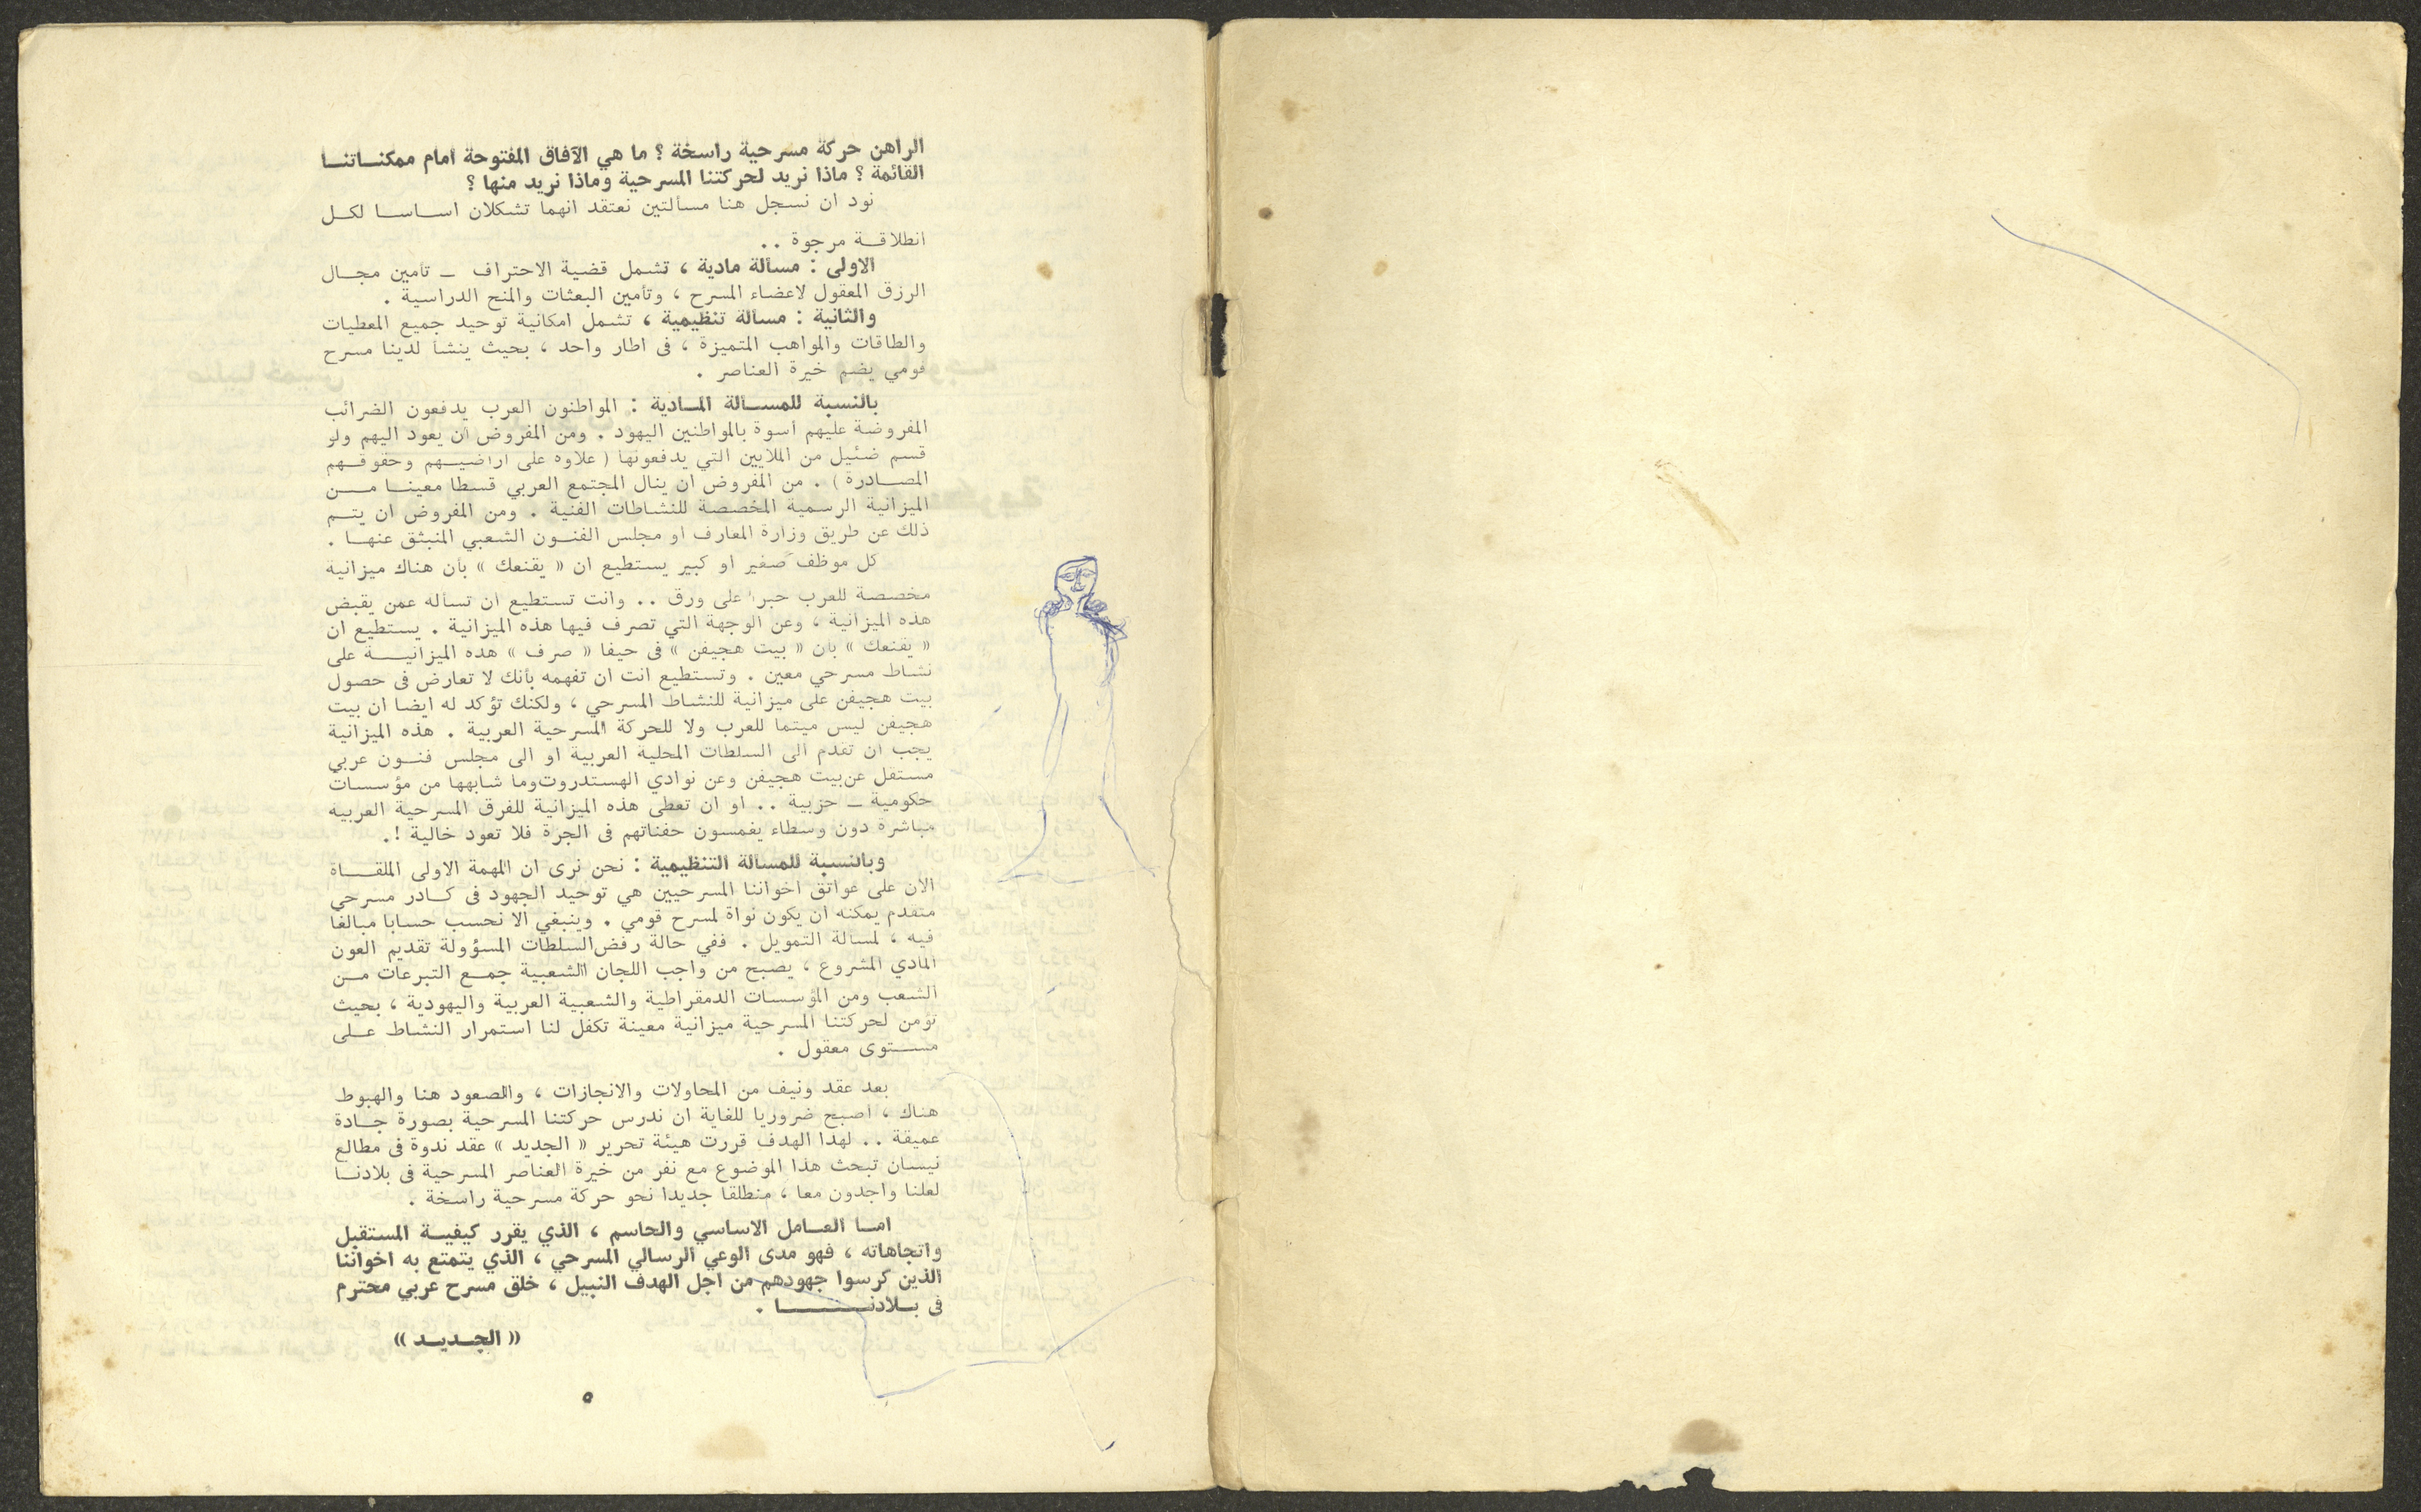 الراهن حركة مسرحية راسخة ؟ ما هي الآفاق المفتوحة أمام ممكنــاتنــا
القائمة ؟ ماذا نريد لحركتنا المسرحية وماذا نريد منها ؟
نود ان نسجل هنا مسألتين نعتقد انهما تشكلان اســاســا لكــل
انطلاقــة مرجوة ..
الاولى : مسألة مادية ، تشمل قضية الاحتراف ـ تأمين مجــال
الرزق المعقول لاعضاء المسرح ، وتأمين البعثات والمنح الدراسية .
والثانية : مسألة تنظيمية ، تشمل امكانية توحيد جميع المعطيات
والطاقات والمواهب المتميزة ، فى اطار واحد ، بحيث ينشأ لدينا مسرح
قومي يضم خيرة العناصر .
بالنسبة للمســألة المــادية : المواطنون العرب يدفعون الضرائب
المفروضة عليهم أسوة بالمواطنين اليهود . ومن المفروض أن يعود اليهم ولو
قسم ضئيل من الملايين التي يدفعونها ( علاوة على اراضيــهم وحقوقــهم
المصــادرة ) . من المفروض ان ينال المجتمع العربي قسطا معينــا مــن
الميزانية الرسمية المخصصة للنشاطات الفنية . ومن المفروض ان يتــم
ذلك عن طريق وزارة المعارف او مجلس الفنــون الشعبي المنبثق عنهــا .
كل موظف صغير او كبير يستطيع ان « يقنعك » بأن هناك ميزانية
مخصصة للعرب حبرا على ورق .. وانت تستطيع ان تسأله عمن يقبض
هذه الميزانية ، وعن الوجهة التي تصرف فيها هذه الميزانية . يستطيع ان
« يقنعك » بأن « بيت هجيفن » فى حيفا « صرف » هذه الميزانيــة على
نشاط مسرحي معين . وتستطيع انت ان تفهمه بأنك لا تعارض فى حصول
بيت هجيفن على ميزانية للنشاط المسرحي ، ولكنك تؤكد له ايضا ان بيت
هجيفن ليس ميتما للعرب ولا للحركة المسرحية العربية . هذه الميزانية
يجب ان تقدم الى السلطات المحلية العربية او الى مجلس فنــون عربي
مستقل عن بيت هجيفن وعن نوادي الهستدروت وما شابهها من مؤسسات
حكومية ـ حزبية .. او ان تعطى هذه الميزانية للفرق المسرحية العربية
مباشرة دون وسطاء يغمسون حفناتهم فى الجرة فلا تعود خالية !.
وبالنسبة للمسألة التنظيمية : نحن نرى ان المهمة الاولى الملقــاة
الآن على عواتق اخواننا المسرحيين هي توحيد الجهود فى كــادر مسرحي
متقدم يمكنه ان يكون نواة لمسرح قومي . وينبغي الا نحسب حسابا مبالغا
فيه ، لمسألة التمويل . ففي حالة رفض السلطات المسؤولة تقديم العون
المادي المشروع ، يصبح من واجب اللجان الشعبية جمــع التبرعات مــن
الشعب ومن المؤسسات الدمقراطية والشعبية العربية واليهودية ، بحيث
تؤمن لحركتنا المسرحية ميزانية معينة تكفل لنا استمرار النشاط علــى
مســتوى معقول .
بعد عقد ونيف من المحاولات والانجازات ، والصعود هنا والهبوط
هناك ، أصبح ضروريا للغاية ان ندرس حركتنا المسرحية بصورة جــادة
عميقة .. لهذا الهدف قررت هيئة تحرير « الجديد » عقد ندوة فى مطالع
نيسان تبحث هذا الموضوع مع نفر من خيرة العناصر المسرحية فى بلادنــا
لعلنا واجدون معا ، منطلقا جديدا نحو حركة مسرحية راسخة .
امــا العــامل الاساسي والحاسم ، الذي يقرر كيفيــة المستقبل
واتجاهاته ، فهو مدى الوعي الرسالي المسرحي ، الذي يتمتع به اخواننا
الذين كرسوا جهودهم من اجل الهدف النبيل ، خلق مسرح عربي محترم
فى بــلادنــــا .
« الجــديــد »
٥